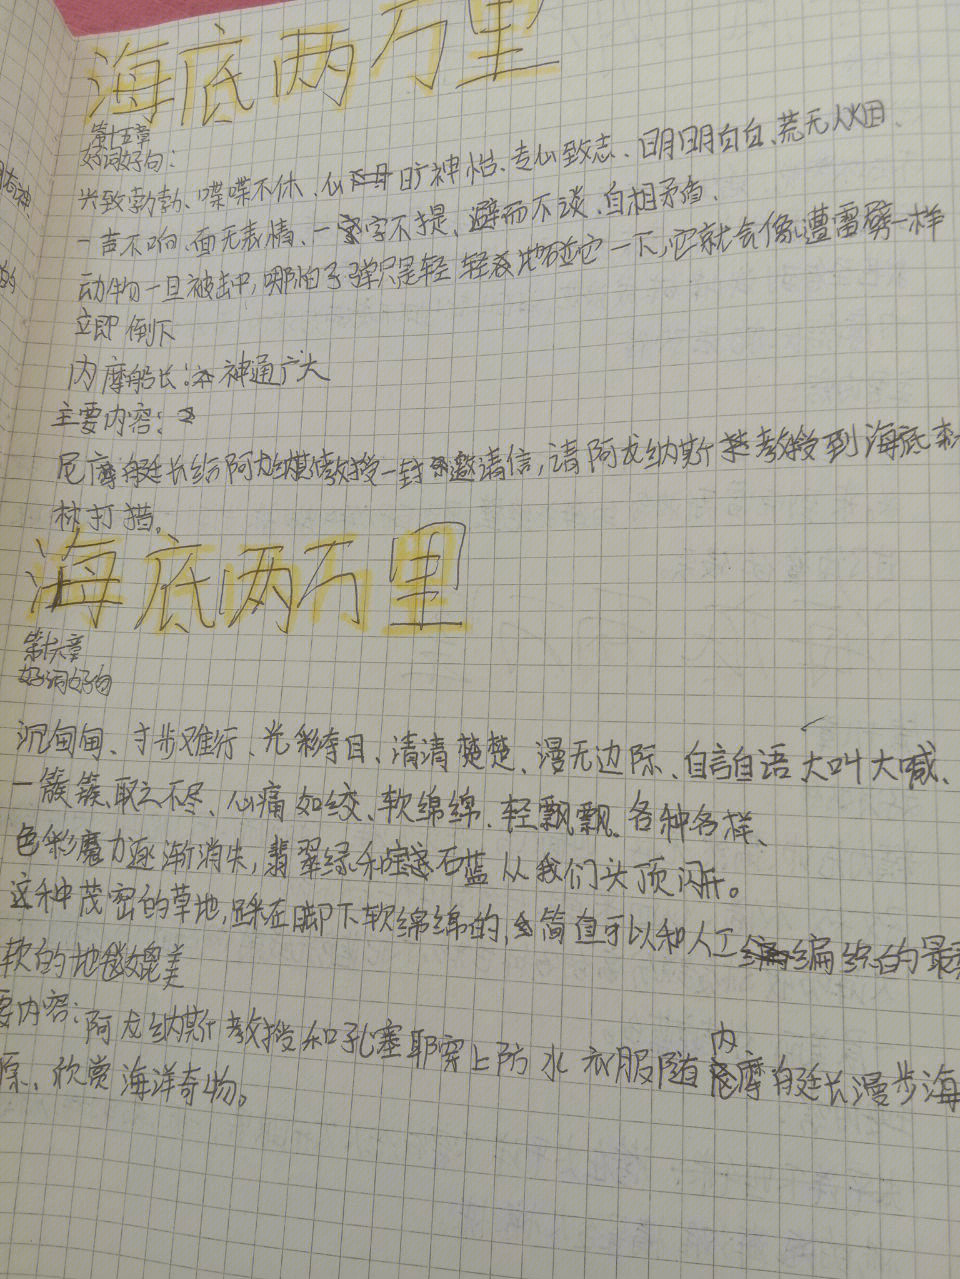 海底两万里
第十五章
好词好句：
兴致勃勃、喋喋不休、心旷神怡、专心致志、明明白白、荒无人烟、
一声不响、面无表情、一字不提、避而不谈、自相矛盾、
动物一旦被击中，哪怕子弹只是轻轻地碰它一下，它就会像遭雷劈一样
立即倒下
内摩船长：神通广大
主要内容：
尼摩艇长给阿龙纳斯教授一封邀请信，请阿龙纳斯教授到海底森
林打猎。
海底两万里
第十六章
好词好句
沉甸甸、寸步难行、光彩夺目、清清楚楚、漫无边际、自言自语 大叫大喊、
一簇簇、取之不尽、心痛如绞、软绵绵、轻飘飘、各种各样、
色彩魔力逐渐消失，翡翠绿和宝石蓝从我们头顶闪开。
这种茂密的草地，踩在脚下软绵绵的，简直可以和人工编织的最
软的地毯媲美
要内容：阿龙纳斯教授和孔塞耶穿上防水衣服随内摩艇长漫步海
原、欣赏海洋奇物。